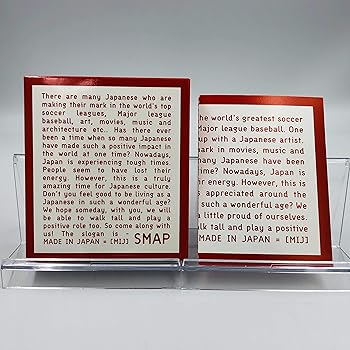 There are many Japanese who are
making their mark in the world's top
soccer leagues, Major league
baseball, art, movies, music and
architecture etc.. Has there ever
been a time when so many Japanese
have made such a positive impact in
the world at one time? Nowadays,
Japan is experiencing tough times.
People seem to have lost their
energy. However, this is a truly
amazing time for Japanese culture.
Don't you feel good to be living as a
Japanese in such a wonderful age?
We hope someday, with you, we will
be able to walk tall and play a
positive role too. So come along with
us! The slogan is -
MADE IN JAPAN = [MIJ] SMAP
the world's greatest soccer
Major league baseball. One
up with a Japanese artist.
mark in movies, music and
many Japanese have been
time? Nowadays, Japan is
r energy. However, this is
s appreciated around the
such a wonderful age? We
little proud of ourselves.
lk tall and play a positive
MADE IN JAPAN = [MIJ]